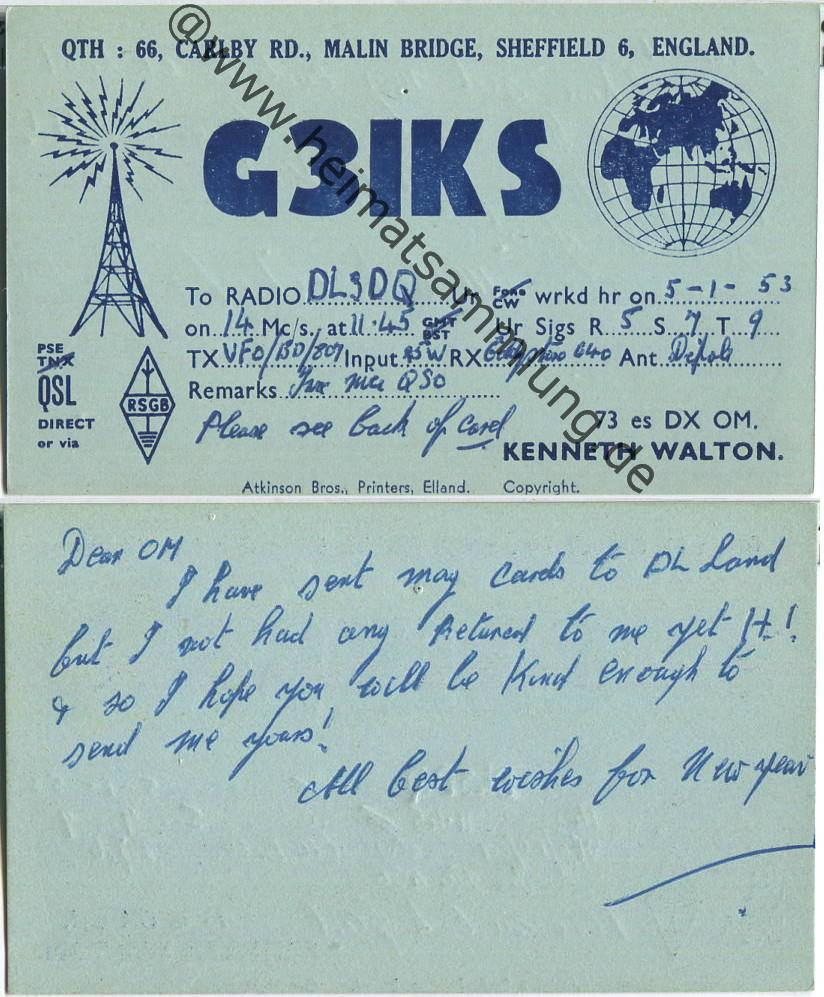 QTH : 66, CARLBY RD., MALIN BRIDGE, SHEFFIELD 6, ENGLAND.
G3IKS
To RADIO DL3DQ Ur Fone CW wrkd hr on 5-1- 53
on 14 Mc/s. at 11.45 GMT BST Ur Sigs R 5 S 7 T 9
TX VFO/BD/807 Input W RX 640 Ant Dipole
PSE
TNX
QSL
DIRECT
or via
RSGB
Remarks Tnx QSO
Please see back of card
73 es DX OM.
KENNETH WALTON.
Atkinson Bros., Printers, Elland. Copyright.
@www.heimatsammlung.de
Dear OM
I have sent may cards to DL Land
but I not had any Returned to me yet Hi!
& so I hope you will be Kind enough to
send me yours!
All best wishes for New year